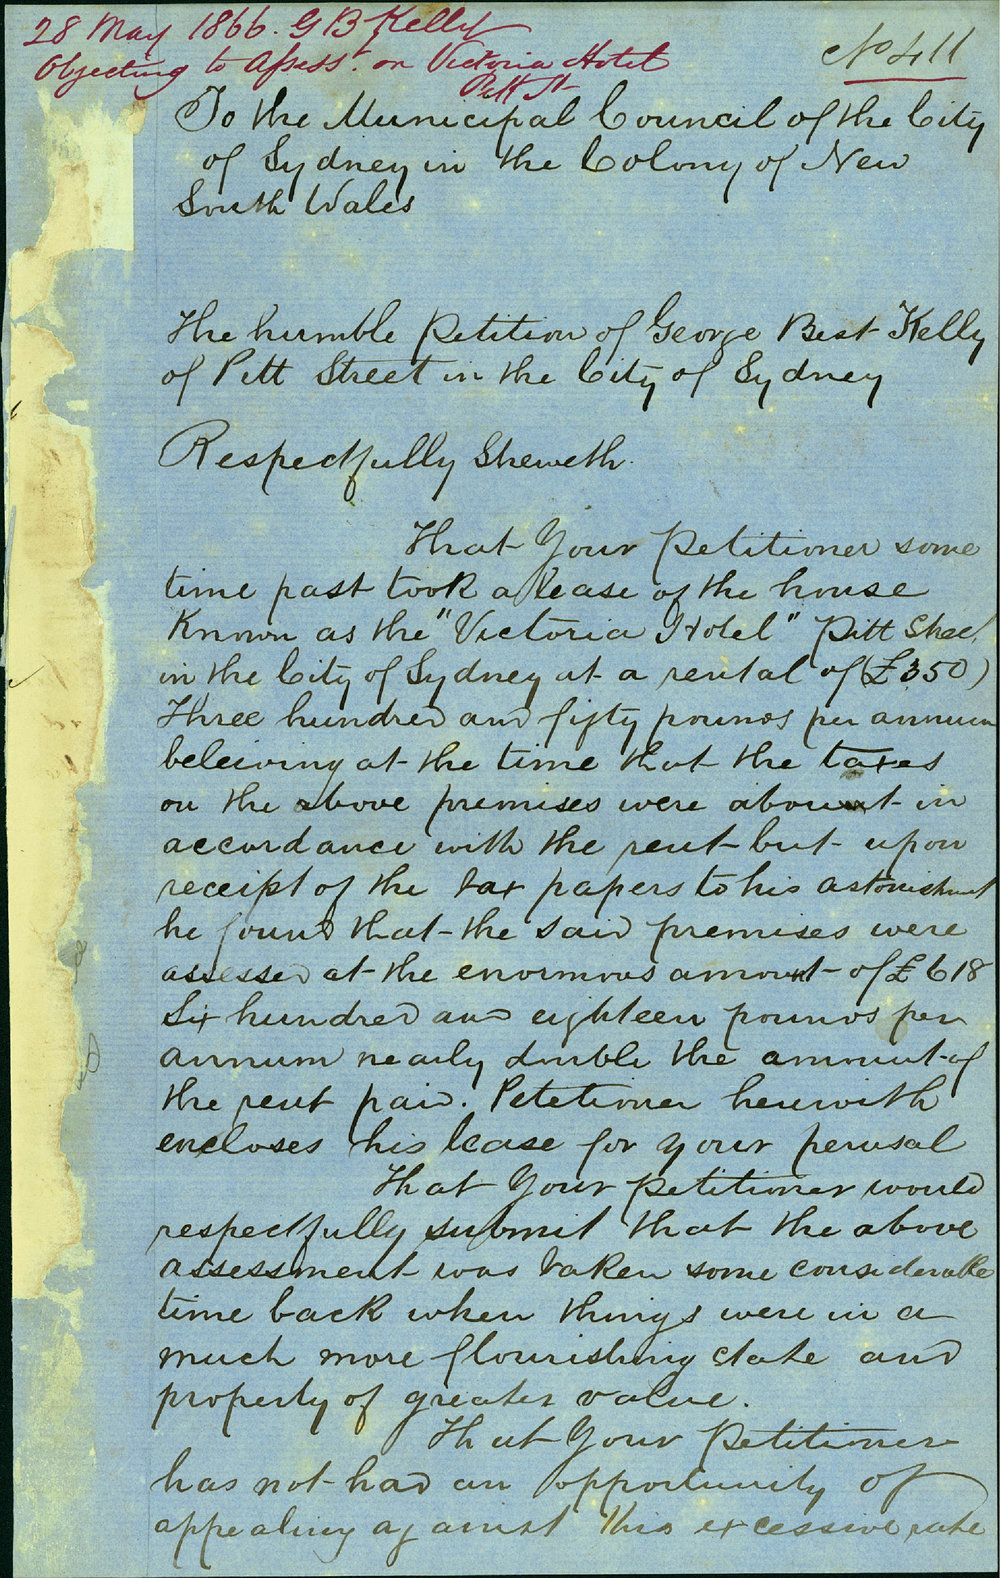 28 May 1866. G B Kelly
Objecting to Assess.t on Victoria Hotel
Pitt St
No 411
To the Municipal Council of the City
of Sydney in the Colony of New
South Wales
The humble Petition of George Best Kelly
of Pitt Street in the City of Sydney
Respectfully Sheweth.
That Your Petitioner some
time past took a lease of the house
Known as the "Victoria Hotel" Pitt Street
in the City of Sydney at a rental of (£350)
Three hundred and fifty pounds per annum
beleiving at the time that the taxes
on the above premises were about in
accordance with the rent but upon
receipt of the tax papers to his astonishment
he found that the said premises were
assessed at the enormous amount of £618
Six hundred and eighteen pounds per
annum nearly double the amount of
the rent paid. Petetioner herewith
encloses his lease for your perusal
That Your Petitioner would
respectfully submit that the above
assessment was taken some considerable
time back when things were in a
much more flourishing state and
property of greater value.
That Your Petitioner
has not had an opportunity of
appealing against this excessive rate